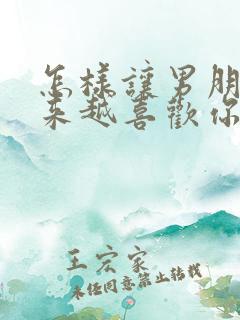 怎樣讓男朋
來越喜歡你
王宏家
未任同意禁止转载